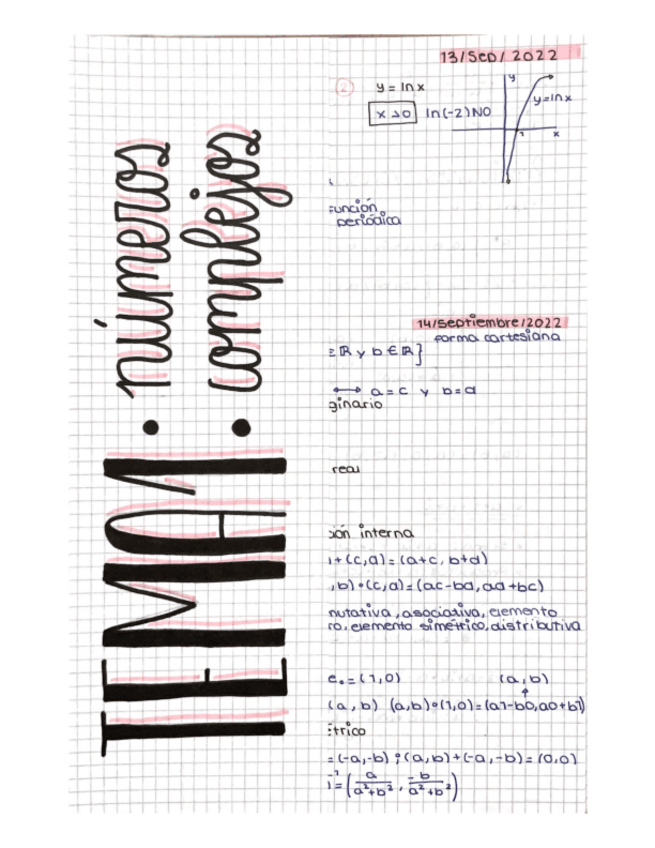 TEMA 1:
números
complejos
13/Sep/2022
2
y = ln x
x > 0 ln(-2) NO
y
y=lnx
1
x
función
periódica
14/septiembre/2022
forma cartesiana
∈ ℝ y b ∈ ℝ }
⟷ a = c y b = d
ginario
real
ión interna
)+(c,d)=(a+c, b+d)
,b)•(c,d)=(ac-bd, ad+bc)
nutativa, asociativa, elemento
ro, elemento simétrico, distributiva
e.=(1,0) (a,b)
(a,b) (a,b)•(1,0)=(a1-b0,a0+b1)
étrico
=(-a,-b) ; (a,b)+(-a,-b)=(0,0)
)⁻¹=(a/(a²+b²), -b/(a²+b²))